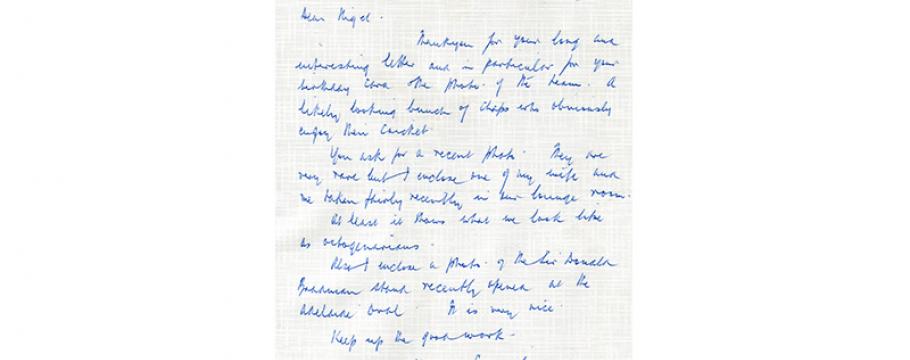 Dear Nigel.
Thankyou for your long and
interesting letter and in particular for your
birthday card & the photo. of the team. A
likely looking bunch of chaps who obviously
enjoy their cricket.
You ask for a recent photo. They are
very rare but I enclose one of my wife and
me taken fairly recently in our lounge room.
At least it shows what we look like
as octogenarians.
Also I enclose a photo. of the Sir Donald
Bradman stand recently opened at the
Adelaide Oval. It is very nice.
Keep up the good work.